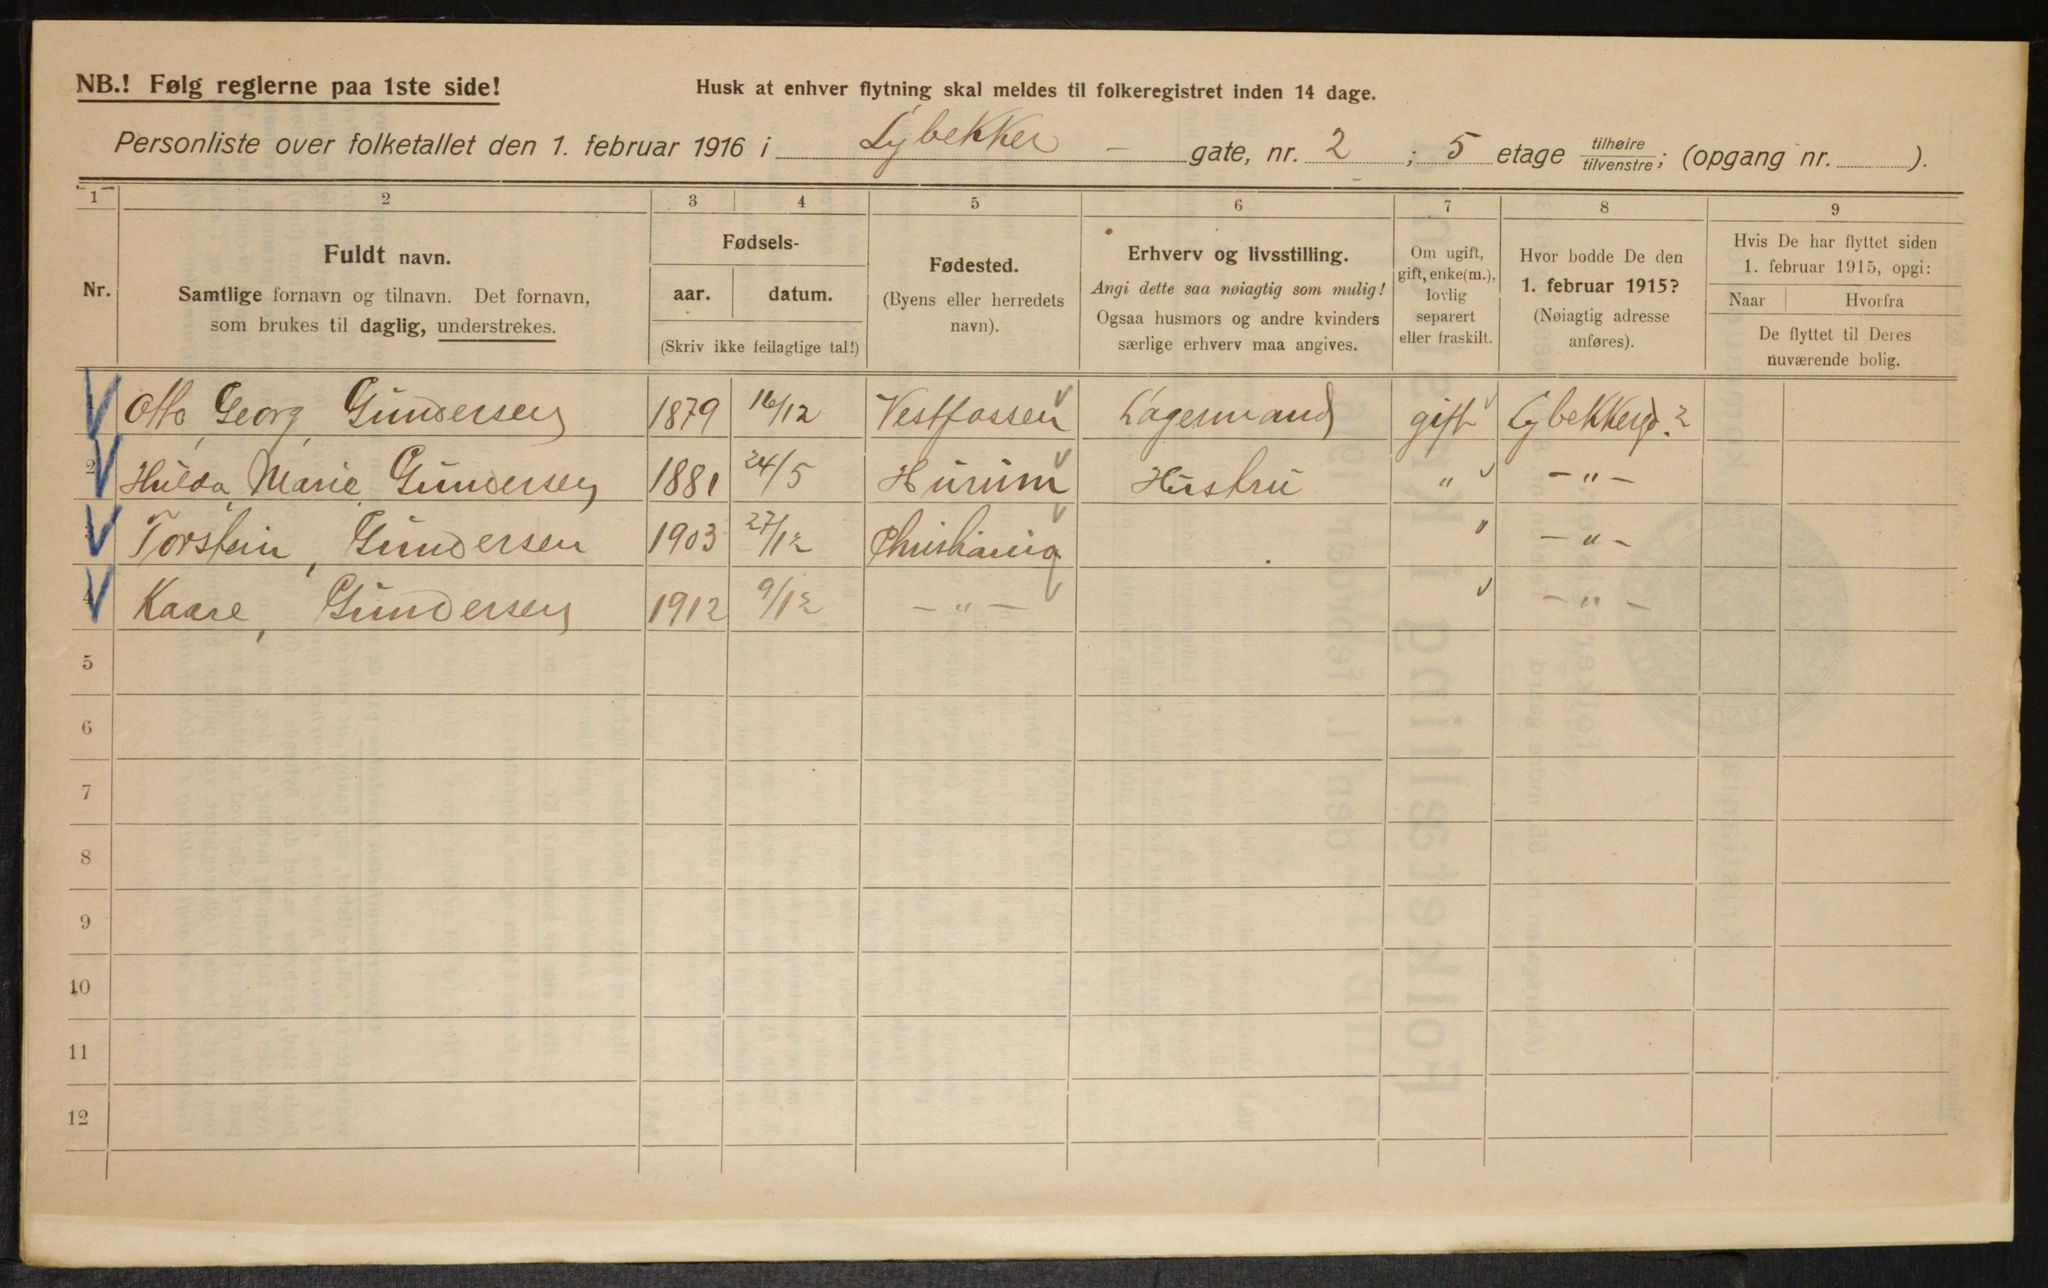 NB.! Følg reglerne paa 1ste side!
Husk at enhver flytning skal meldes til folkeregistret inden 14 dage.
Personliste over folketallet den 1. februar 1916 i Lybekker - gate, nr. 2 ; 5 etage tilhøire tilvenstre; (opgang nr. ).
1 2 3 4 5 6 7 8 9
Nr.
Fuldt navn.
Samtlige fornavn og tilnavn. Det fornavn,
som brukes til daglig, understrekes.
Fødsels-
aar. datum.
(Skriv ikke feilagtige tal!)
Fødested.
(Byens eller herredets
navn).
Erhverv og livsstilling.
Angi dette saa nøiagtig som mulig!
Ogsaa husmors og andre kvinders
særlige erhverv maa angives.
Om ugift,
gift, enke(m.),
lovlig
separert
eller fraskilt.
Hvor bodde De den
1. februar 1915?
(Nøiagtig adresse
anføres).
Hvis De har flyttet siden
1. februar 1915, opgi:
Naar Hvorfra
De flyttet til Deres
nuværende bolig.
Otto Georg Gundersen 1879 16/12 Vestfossen Lagermand gift Lybekkergd. 2
2 Hulda Marie Gundersen 1881 24/5 Hurum Hustru " - " -
Torstein, Gundersen 1903 27/12 Christiania " - " -
4 Kaare, Gundersen 1912 9/12 - " - - " -
5
6
7
8
9
10
11
12